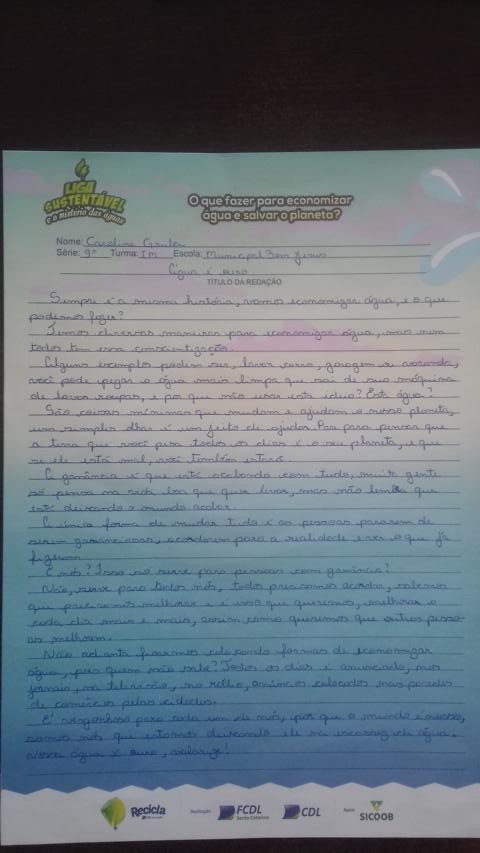 LIGA
SUSTENTÁVEL
e o mistério das águas
O que fazer para economizar
água e salvar o planeta?
Nome: Caroline
Série: 9º Turma: Im Escola: Municipal Bom Jesus
Água é ouro
TÍTULO DA REDAÇÃO
Sempre é a mesma história, vamos economizar água, e o que
podemos fazer?
Temos diversas maneiras para economizar água, mas nem
todos tem essa conscientização.
Alguns exemplos podem ser, lavar carro, garagem ou varanda,
você pode pegar a água mais limpa que sai de sua máquina
de lavar roupas, e por que não usar esta ideia? Esta água?
São coisas mínimas que mudam e ajudam o nosso planeta,
um simples olhar é um jeito de ajudar. Pare para pensar que
a terra que você pisa todos os dias é o seu planeta, e que
se ele está mal, você também estará.
A ganância é que está acabando com tudo, muita gente
só pensa na vida boa que quer levar, mas não lembra que
está deixando o mundo acabar.
A única forma de mudar tudo é as pessoas pararem de
serem gananciosas, acordarem para a realidade e ver o que já
fizeram.
E nós? Isso só serve para pessoas com ganância?
Não, serve para todos nós, todos precisamos acordar, sabemos
que precisamos melhorar e é isso que queremos, melhorar a
cada dia mais e mais, assim como queremos que outras pesso-
as melhorem.
Não adianta ficarmos colocando formas de economizar
água, pois quem não sabe? Todos os dias é anunciado, nos
jornais, na televisão, no rádio, anúncios colocados nas paredes
de comércios pelas cidades.
É vergonhoso para cada um de nós, por que o mundo é nosso,
somos nós que estamos deixando ele na escassez de água.
Nossa água é ouro, valorize!
Recicla
Realização
FCDL
Santa Catarina
CDL
Apoio
SICOOB